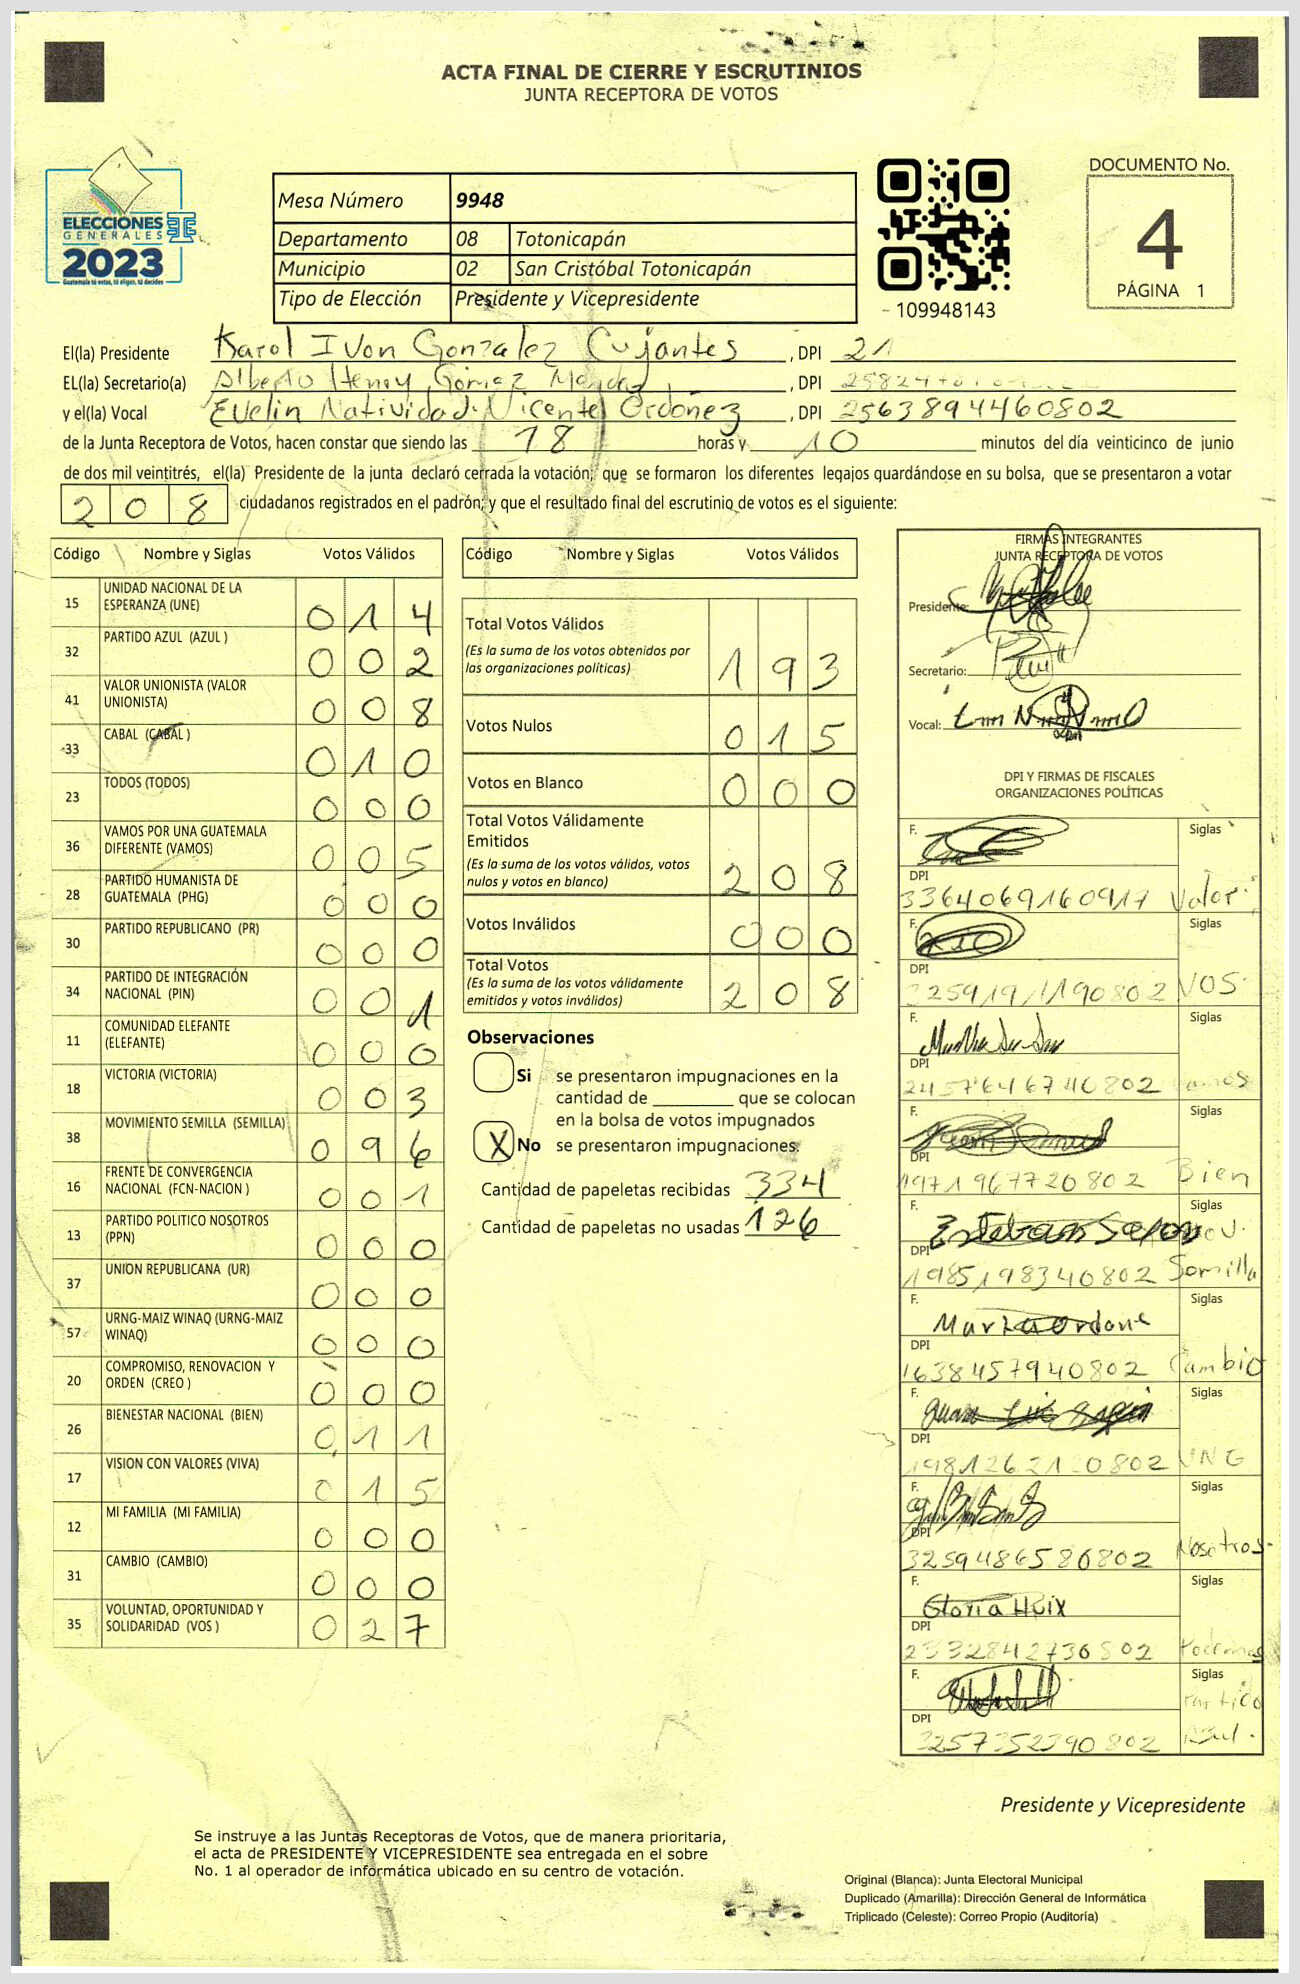 ACTA FINAL DE CIERRE Y ESCRUTINIOS
JUNTA RECEPTORA DE VOTOS
ELECCIONES
GENERALES
2023
Guatemala tú estas, tú eliges, tú decides
Mesa Número 9948
Departamento 08 Totonicapán
Municipio 02 San Cristóbal Totonicapán
Tipo de Elección Presidente y Vicepresidente
109948143
DOCUMENTO No.
4
PÁGINA 1
El(la) Presidente Karol Ivon Gonzalez Cujantes, DPI 21
EL(la) Secretario(a) Alberto Henry Gómez Mendez, DPI
y el(la) Vocal Evelin Natividad Vicente Ordoñez, DPI 2563894460802
de la Junta Receptora de Votos, hacen constar que siendo las 18 horas y 10 minutos del día veinticinco de junio
de dos mil veintitrés, el(la) Presidente de la junta declaró cerrada la votación; que se formaron los diferentes legajos guardándose en su bolsa, que se presentaron a votar
208 ciudadanos registrados en el padrón; y que el resultado final del escrutinio de votos es el siguiente:
Código Nombre y Siglas Votos Válidos
15 UNIDAD NACIONAL DE LA ESPERANZA (UNE) 014
32 PARTIDO AZUL (AZUL ) 002
41 VALOR UNIONISTA (VALOR UNIONISTA) 008
33 CABAL (CABAL ) 010
23 TODOS (TODOS) 000
36 VAMOS POR UNA GUATEMALA DIFERENTE (VAMOS) 005
28 PARTIDO HUMANISTA DE GUATEMALA (PHG) 000
30 PARTIDO REPUBLICANO (PR) 000
34 PARTIDO DE INTEGRACIÓN NACIONAL (PIN) 001
11 COMUNIDAD ELEFANTE (ELEFANTE) 000
18 VICTORIA (VICTORIA) 003
38 MOVIMIENTO SEMILLA (SEMILLA) 096
16 FRENTE DE CONVERGENCIA NACIONAL (FCN-NACION ) 001
13 PARTIDO POLITICO NOSOTROS (PPN) 000
37 UNION REPUBLICANA (UR) 000
57 URNG-MAIZ WINAQ (URNG-MAIZ WINAQ) 000
20 COMPROMISO, RENOVACION Y ORDEN (CREO ) 000
26 BIENESTAR NACIONAL (BIEN) 011
17 VISION CON VALORES (VIVA) 015
12 MI FAMILIA (MI FAMILIA) 000
31 CAMBIO (CAMBIO) 000
35 VOLUNTAD, OPORTUNIDAD Y SOLIDARIDAD (VOS ) 027
Código Nombre y Siglas Votos Válidos
Total Votos Válidos
(Es la suma de los votos obtenidos por las organizaciones políticas) 193
Votos Nulos 015
Votos en Blanco 000
Total Votos Válidamente Emitidos
(Es la suma de los votos válidos, votos nulos y votos en blanco) 208
Votos Inválidos 000
Total Votos
(Es la suma de los votos válidamente emitidos y votos inválidos) 208
Observaciones
Si se presentaron impugnaciones en la
cantidad de ________ que se colocan
en la bolsa de votos impugnados
X No se presentaron impugnaciones.
Cantidad de papeletas recibidas 334
Cantidad de papeletas no usadas 126
FIRMAS INTEGRANTES
JUNTA RECEPTORA DE VOTOS
Presidente:
Secretario:
Vocal:
DPI Y FIRMAS DE FISCALES
ORGANIZACIONES POLÍTICAS
F. Siglas
DPI
3364069160917 Valor
F. Siglas
DPI
3259191190802 VOS
F. Siglas
DPI
2457646740802
F. Siglas
DPI
1971967720802 Bien
F. Esteban Siglas
DPI
1985198340802 Semilla
F. Siglas
DPI
1638457940802 Cambio
F. Siglas
DPI
1981262120802
F. Siglas
DPI
3259486580802 Nosotros
F. Gloria Huix Siglas
DPI
2332842730802
F. Siglas
DPI Partido
3257352390802 Azul
Presidente y Vicepresidente
Se instruye a las Juntas Receptoras de Votos, que de manera prioritaria,
el acta de PRESIDENTE Y VICEPRESIDENTE sea entregada en el sobre
No. 1 al operador de informática ubicado en su centro de votación.
Original (Blanca): Junta Electoral Municipal
Duplicado (Amarilla): Dirección General de Informática
Triplicado (Celeste): Correo Propio (Auditoría)